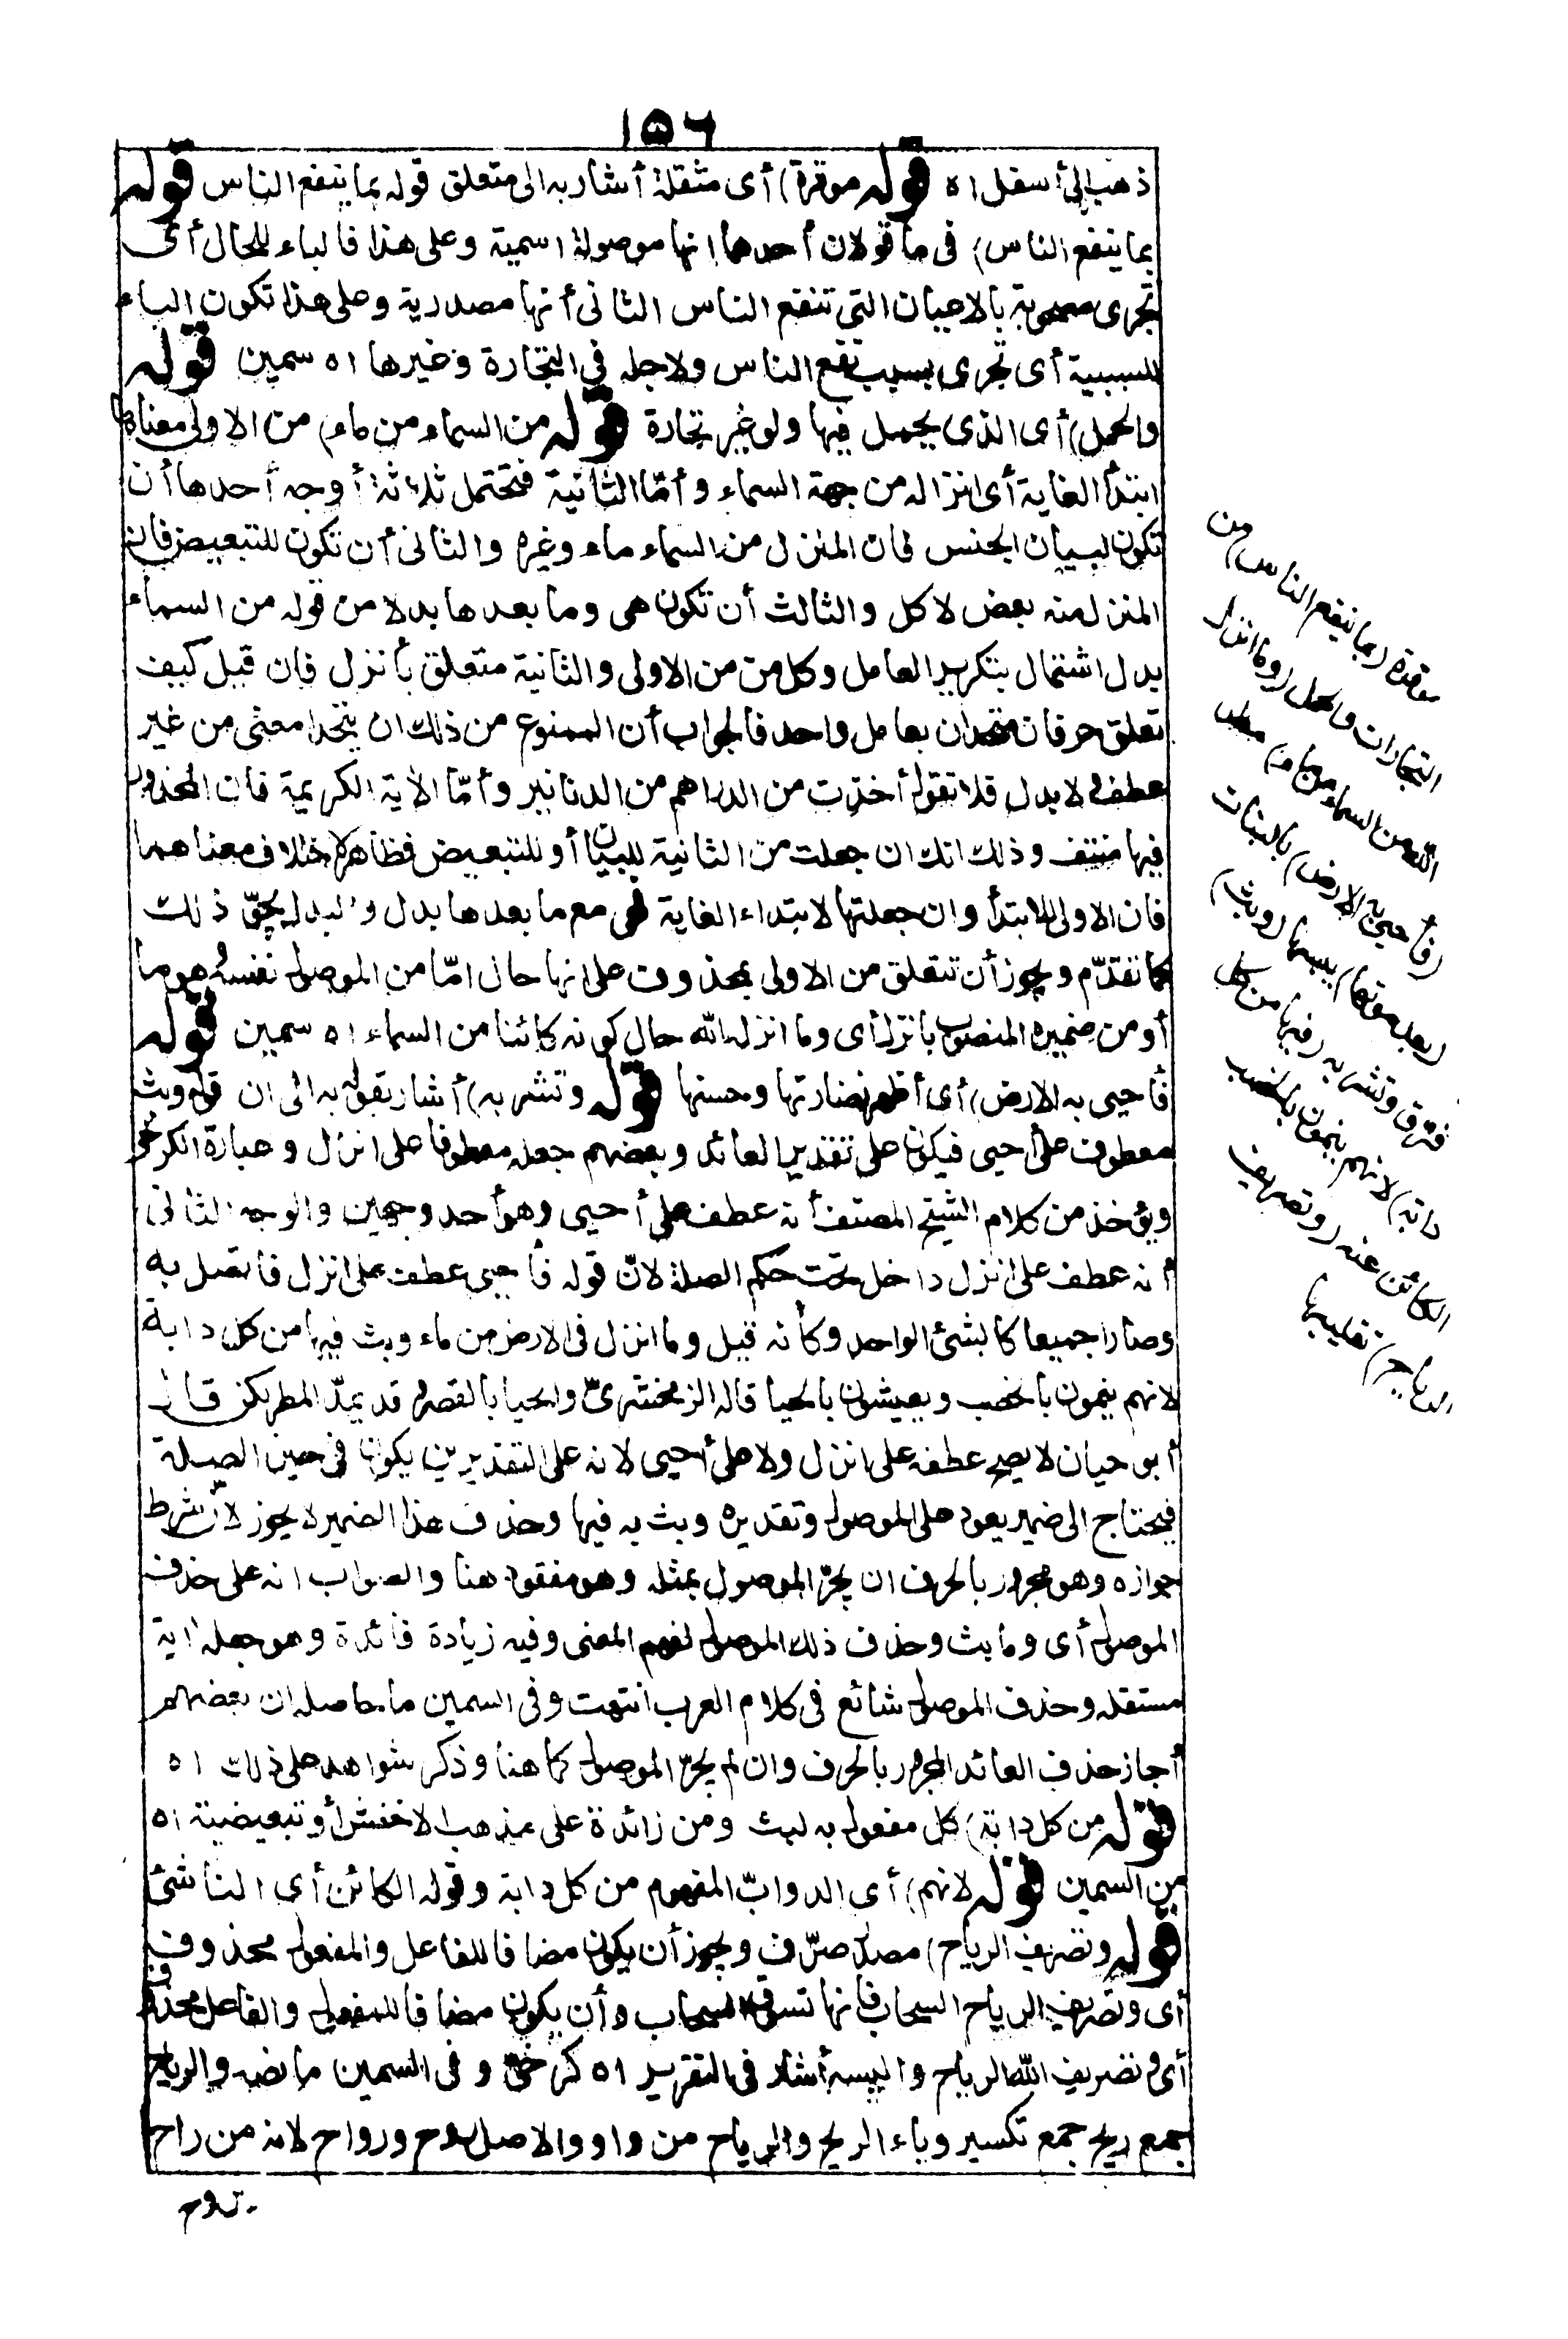 ١٥٦
ذهب إلى أسفل اه قوله موقرة) أى مثقلة أشار به الى متعلق قوله بما ينفع الناس قوله
بما ينفع الناس) فى ما قولان أحدها انها موصولة اسمية وعلى هذا فالباء للحال أى
تجرى مصحوبة بالاعيان التى تنفع الناس الثانى أنها مصدرية وعلى هذا تكون الباء
للسببية أى تجرى بسبب نفع الناس ولاجله فى التجارة وغيرها اه سمين قوله
والحمل) أى الذى يحمل فيها ولو غير تجارة قوله من السماء من ماء) من الاولى معناها
ابتدأ الغاية أى انزاله من جهة السماء وأمّا الثانية فتحتمل ثلاثة أوجه أحدها أن
تكون لبيان الجنس فان المنزل من السماء ماء وغيره والثانى أن تكون للتبعيض فان
المنزل منه بعض لا كل والثالث أن تكون هى وما بعدها بدلا من قوله من السماء
بدل اشتمال بتكرير العامل وكل من من الاولى والثانية متعلق بأنزل فان قيل كيف
تعلق حرفان متحدان بعامل واحد فالجواب أن الممنوع من ذلك ان يتحدا معنى من غير
عطف ولا بدل فلا تقول أخذت من الدراهم من الدنانير وأمّا الأية الكريمة فان المحذور
فيها منتف وذلك انك ان جعلت من الثانية للبيان أو للتبعيض فظاهر لاختلاف معناهما
فان الاولى للابتدأ وان جعلتها لابتداء الغاية فهى مع ما بعدها بدل والبدل يجوّ ذلك
كما تقدّم ويجوز أن تتعلق من الاولى بمحذوف على انها حال امّا من الموصول نفسه وهو ما
أو من ضميره المنصوب بانزل أى وما انزله الله حال كونه كائنا من السماء اه سمين قوله
فأحيى به الارض) أى أظهر نضارتها وحسنها قوله وتشر به) أشار بقوله به الى ان قوله وبث
معطوف على أحيى فيكون على تقدير العائد وبعضهم جعله معطوفا على انزل وعبارة الكرخى
ويؤخذ من كلام الشيخ المصنف أنه عطف على أحيى وهو أحد وجهين والوجه الثانى
أنه عطف على انزل داخل تحت حكم الصلة لانّ قوله فأحيى عطف على انزل فاتصل به
وصارا جميعا كالشئ الواحد وكأنه قيل وما انزل فى الارض من ماء وبث فيها من كل دابة
لانهم ينمون بالخصب ويعيشون بالحيا قاله الزمخشرىّ والحيا بالقصر وقد يمدّ المطر لكن قال
أبو حيان لا يصح عطفه على انزل ولا على أحيى لانه على التقديرين يكون فى حيز الصلة
فيحتاج الى ضمير يعود على الموصول وتقديره وبث به فيها وحذف هذا الضمير لا يجوز لأن شرط
جوازه وهو مجرور بالحرف ان يجرّ الموصول بمثله وهو مفقود هنا والصواب انه على حذف
الموصول أى وما بث وحذف ذلك الموصول لفهم المعنى وفيه زيادة فائدة وهو جعله أية
مستقله وحذف الموصول شائع فى كلام العرب انتهت وفى السمين ما حاصله ان بعضهم
أجاز حذف العائد المجرور بالحرف وان لم يجرّ الموصول كما هنا وذكر شواهد على ذلك اه
قوله من كل دابة) كل مفعول به لبث ومن زائدة على مذهب الاخفش أو تبعيضية اه
من السمين قوله لانهم) أى الدوابّ المفهوم من كل دابة وقوله الكائن أى الناشئ
قوله وتصريف الرياح) مصدر صرّف ويجوز أن يكون مضافا للفاعل والمفعول محذوف
أى وتصريف الرياح السحاب فانها تسوق السحاب وأن يكون مضافا للمفعول والفاعل محذوف
أى وتصريف الله الرياح واليه أشار فى التقرير اه كرخىّ وفى السمين ما نصه والرياح
جمع ريح جمع تكسير وياء الريح والرياح من واو والاصل روح ورواح لانه من راح
يروح
موقرة (بما ينفع الناس) من
التجارات والحمل (وما انزل
الله من السماء من ماء) مطر
(فأحيى به الارض) بالنبات
(بعد موتها) يبسها (وبث)
فرق وتشر به (فيها من كل
دابة) لانهم ينمون بالخصب
الكائن عنه (وتصريف
الرياح) تقليبها